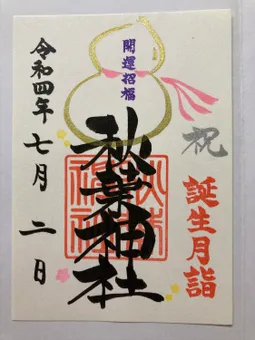 祝
誕生月詣
開運招福
秋葉神社
令和四年
七月二日